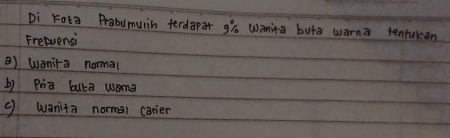 Di Kota Prabumurih terdapat 9% wanita buta warna tentukan
Frekuensi
a) wanita normal
b) Pria buta warna
c) wanita normal carier